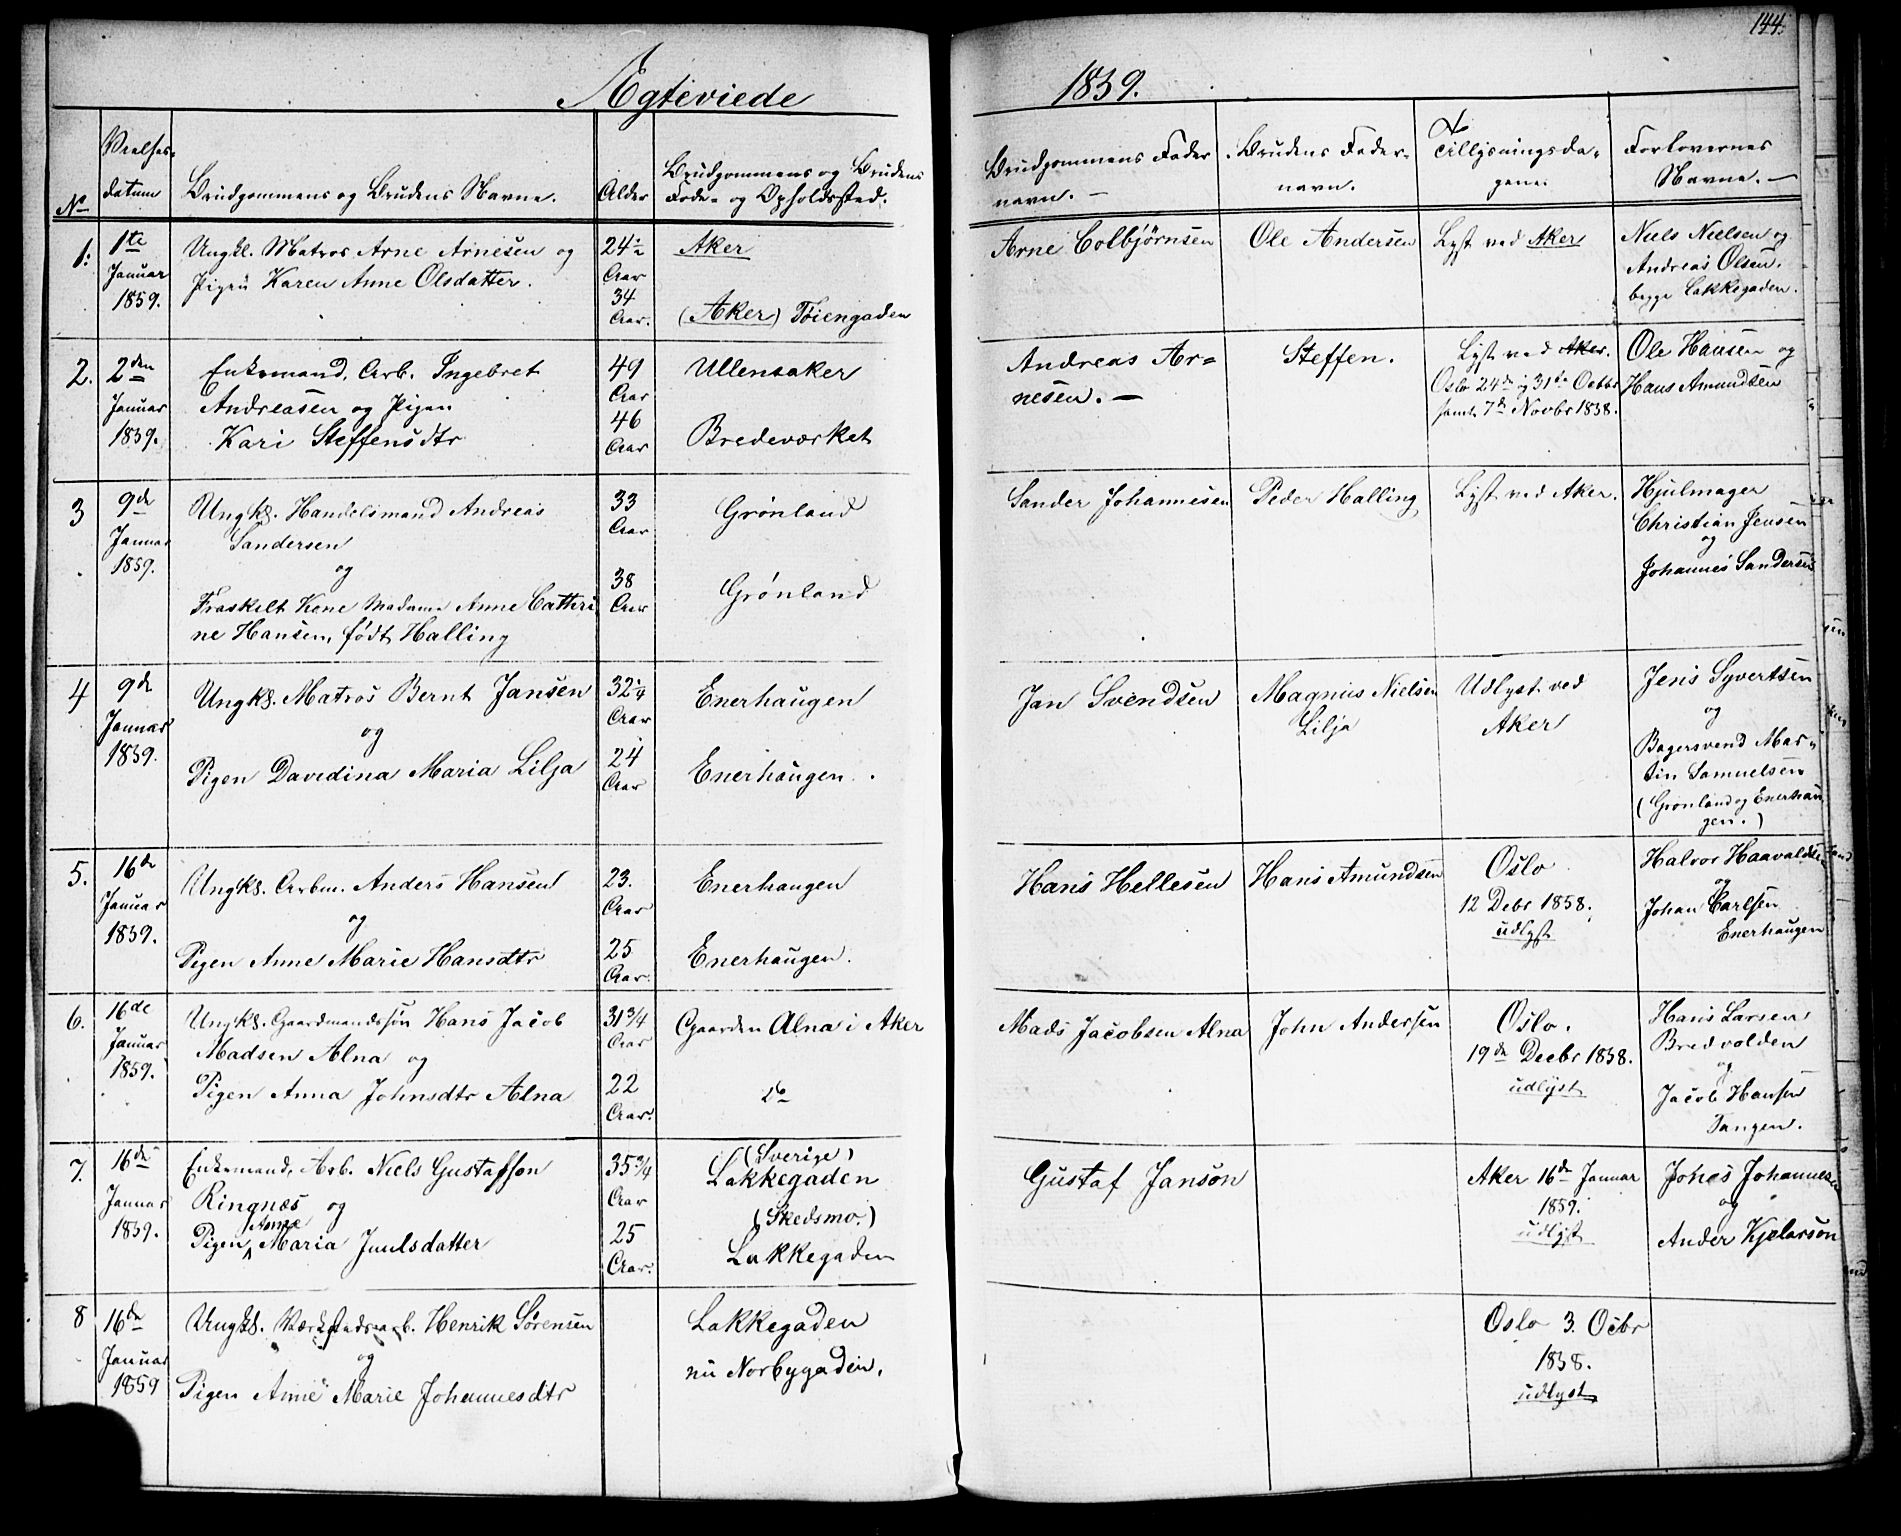 144.
Ægteviede 1859.
No
Vielses-
datum
Brudgommens og Brudens Navne.
Alder
Brudgommens og Brudens
Føde- og Opholdssted.
Brudgommens Fader
navn.
Brudens Fader-
navn.
Tillysningsda-
gene.
Forlovernes
Navne.
1.
1te
Januar
1859.
Ungkl. Matros Arne Arnesen og
Pigen Karen Anne Olsdatter.
24
Aar
34
Aar.
Aker
(Aker) Tøiengaden
Arne Colbjørnsen
Ole Andersen
Lyst ved Aker
Niels Nielsen og
Andreas Olsen.
begge Lakkegaden.
2.
2den
Januar
1859.
Enkemand, Arb. Ingebret
Andreasen og Pigen
Kari Steffensdtr
49
Aar
46
Aar
Ullensaker
Bredeværket
Andreas Ar=
nesen. —
Steffen.
Lyst ved Aker.
Oslo 24de og 31te Octbr
samt 7de Novbr 1858.
Ole Hansen og
Hans Amundsen
3
9de
Januar
1859.
Ungks. Handelsmand Andreas
Sandersen
og
Fraskilt Kone Madame Anne Cathri
ne Hansen, født Halling
33
Aar
38
Aar
Grønland
Grønland
Sander Johannesen
Peder Halling
Lyst ved Aker.
Hjulmager
Christian Jensen
og
Johannes Sandersen
4
9de
Januar
1859.
Ungks. Matros Bernt Jansen
og
Pigen Davidina Maria Lilja
32 1/4
Aar
24
Aar
Enerhaugen
Enerhaugen.
Jan Svendsen
Magnus Nielsen
Lilja
Udlyst ved
Aker
Jens Syvertsen
og
Bagersvend Mar-
tin Samuelsen
(Grønland og Enerhau
gen.)
5.
16de
Januar
1859.
Ungks. Arbm. Anders Hansen
og
Pigen Anne Marie Hansdtr
23.
Aar
25
Aar.
Enerhaugen
Enerhaugen.
Hans Hellesen
Hans Amundsen
Oslo
12 Debr 1858.
udlyst
Halvor Haavaldsen
og
Johan Carlsen
Enerhaugen
6.
16de
Januar
1859.
Ungks. Gaardmandssøn Hans Jacob
Madsen Alna og
Pigen Anna Johnsdtr Alna
31 3/4
Aar
22
Aar.
Gaarden Alna i Aker
do
Mads Jacobsen Alna
John Andersen
Oslo.
19de Decbr 1858.
udlyst
Hans Larsen
Bredvolden
og
Jacob Hansen
Tangen.
7.
16de
Januar
1859.
Enkemand, Arb. Niels Gustafson
Ringnæs og
Anne
Pigen Maria Juulsdatter
35 3/4
Aar
25
Aar.
(Sverige)
Lakkegaden
(Skedsmo.)
Lakkegaden
Gustaf Janson
Aker 16de Januar
1859.
udlyst
Johanes Johannesen
og
Ander Kjelarson
8
16de
Januar
1859
Ungks. Værkstedsarb. Henrik Sørensen
og
Pigen Anne Marie Johannesdtr
Lakkegaden
nu Norbygaden.
Oslo 3. Octbr
1858.
udlyst